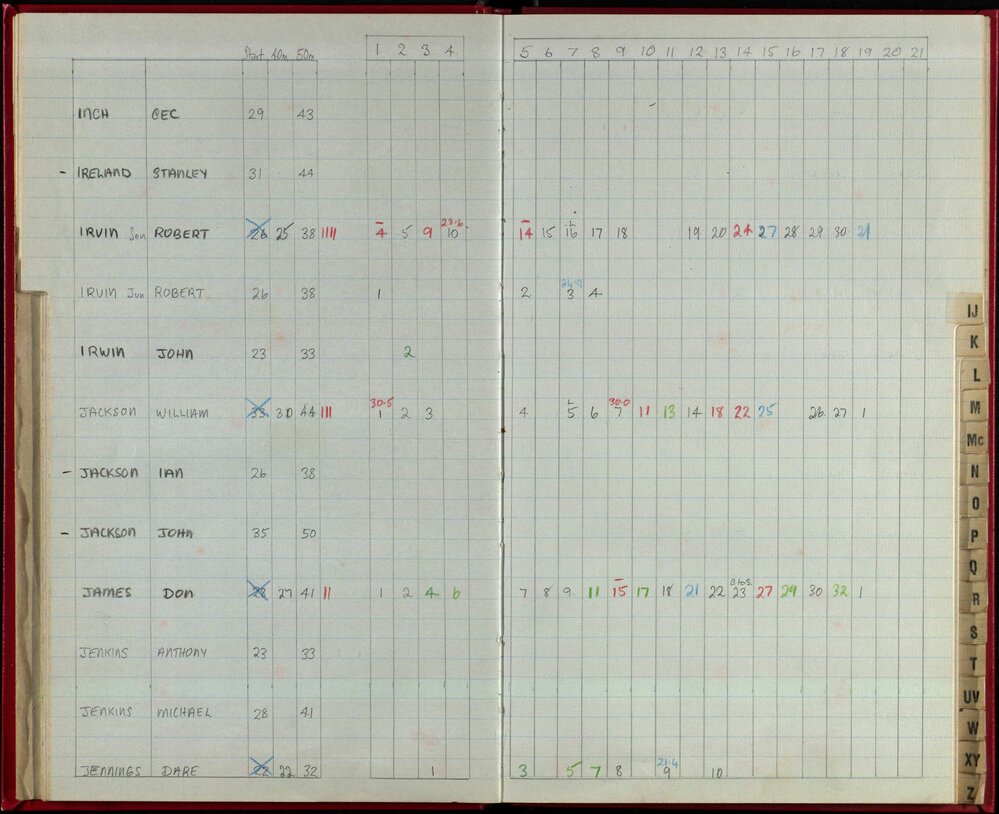 Start 40m 50m 1 2 3 4 5 6 7 8 9 10 11 12 13 14 15 16 17 18 19 20 21
INCH CEC 29 43
- IRELAND STANLEY 31 44
23.6
IRVIN Sen ROBERT 26 25 38 IIII 4 5 9 10 14 15 16 17 18 19 20 24 27 28 29 30 21
24.9
IRVIN Jun ROBERT 26 38 1 2 3 4
IRWIN JOHN 23 33 2
30.5 30.0
JACKSON WILLIAM 33 30 44 III 1 2 3 4 5 6 7 11 13 14 18 22 25 26 27 1
- JACKSON IAN 26 38
- JACKSON JOHN 35 50
JAMES DON 28 27 41 II 1 2 4 6 7 8 9 11 15 17 18 21 22 23 27 29 30 32 1
JENKINS ANTHONY 23 33
JENKINS MICHAEL 28 41
21.4
JENNINGS DARE 22 22 32 1 3 5 7 8 9 10
IJ
K
L
M
Mc
N
O
P
Q
R
S
T
UV
W
XY
Z